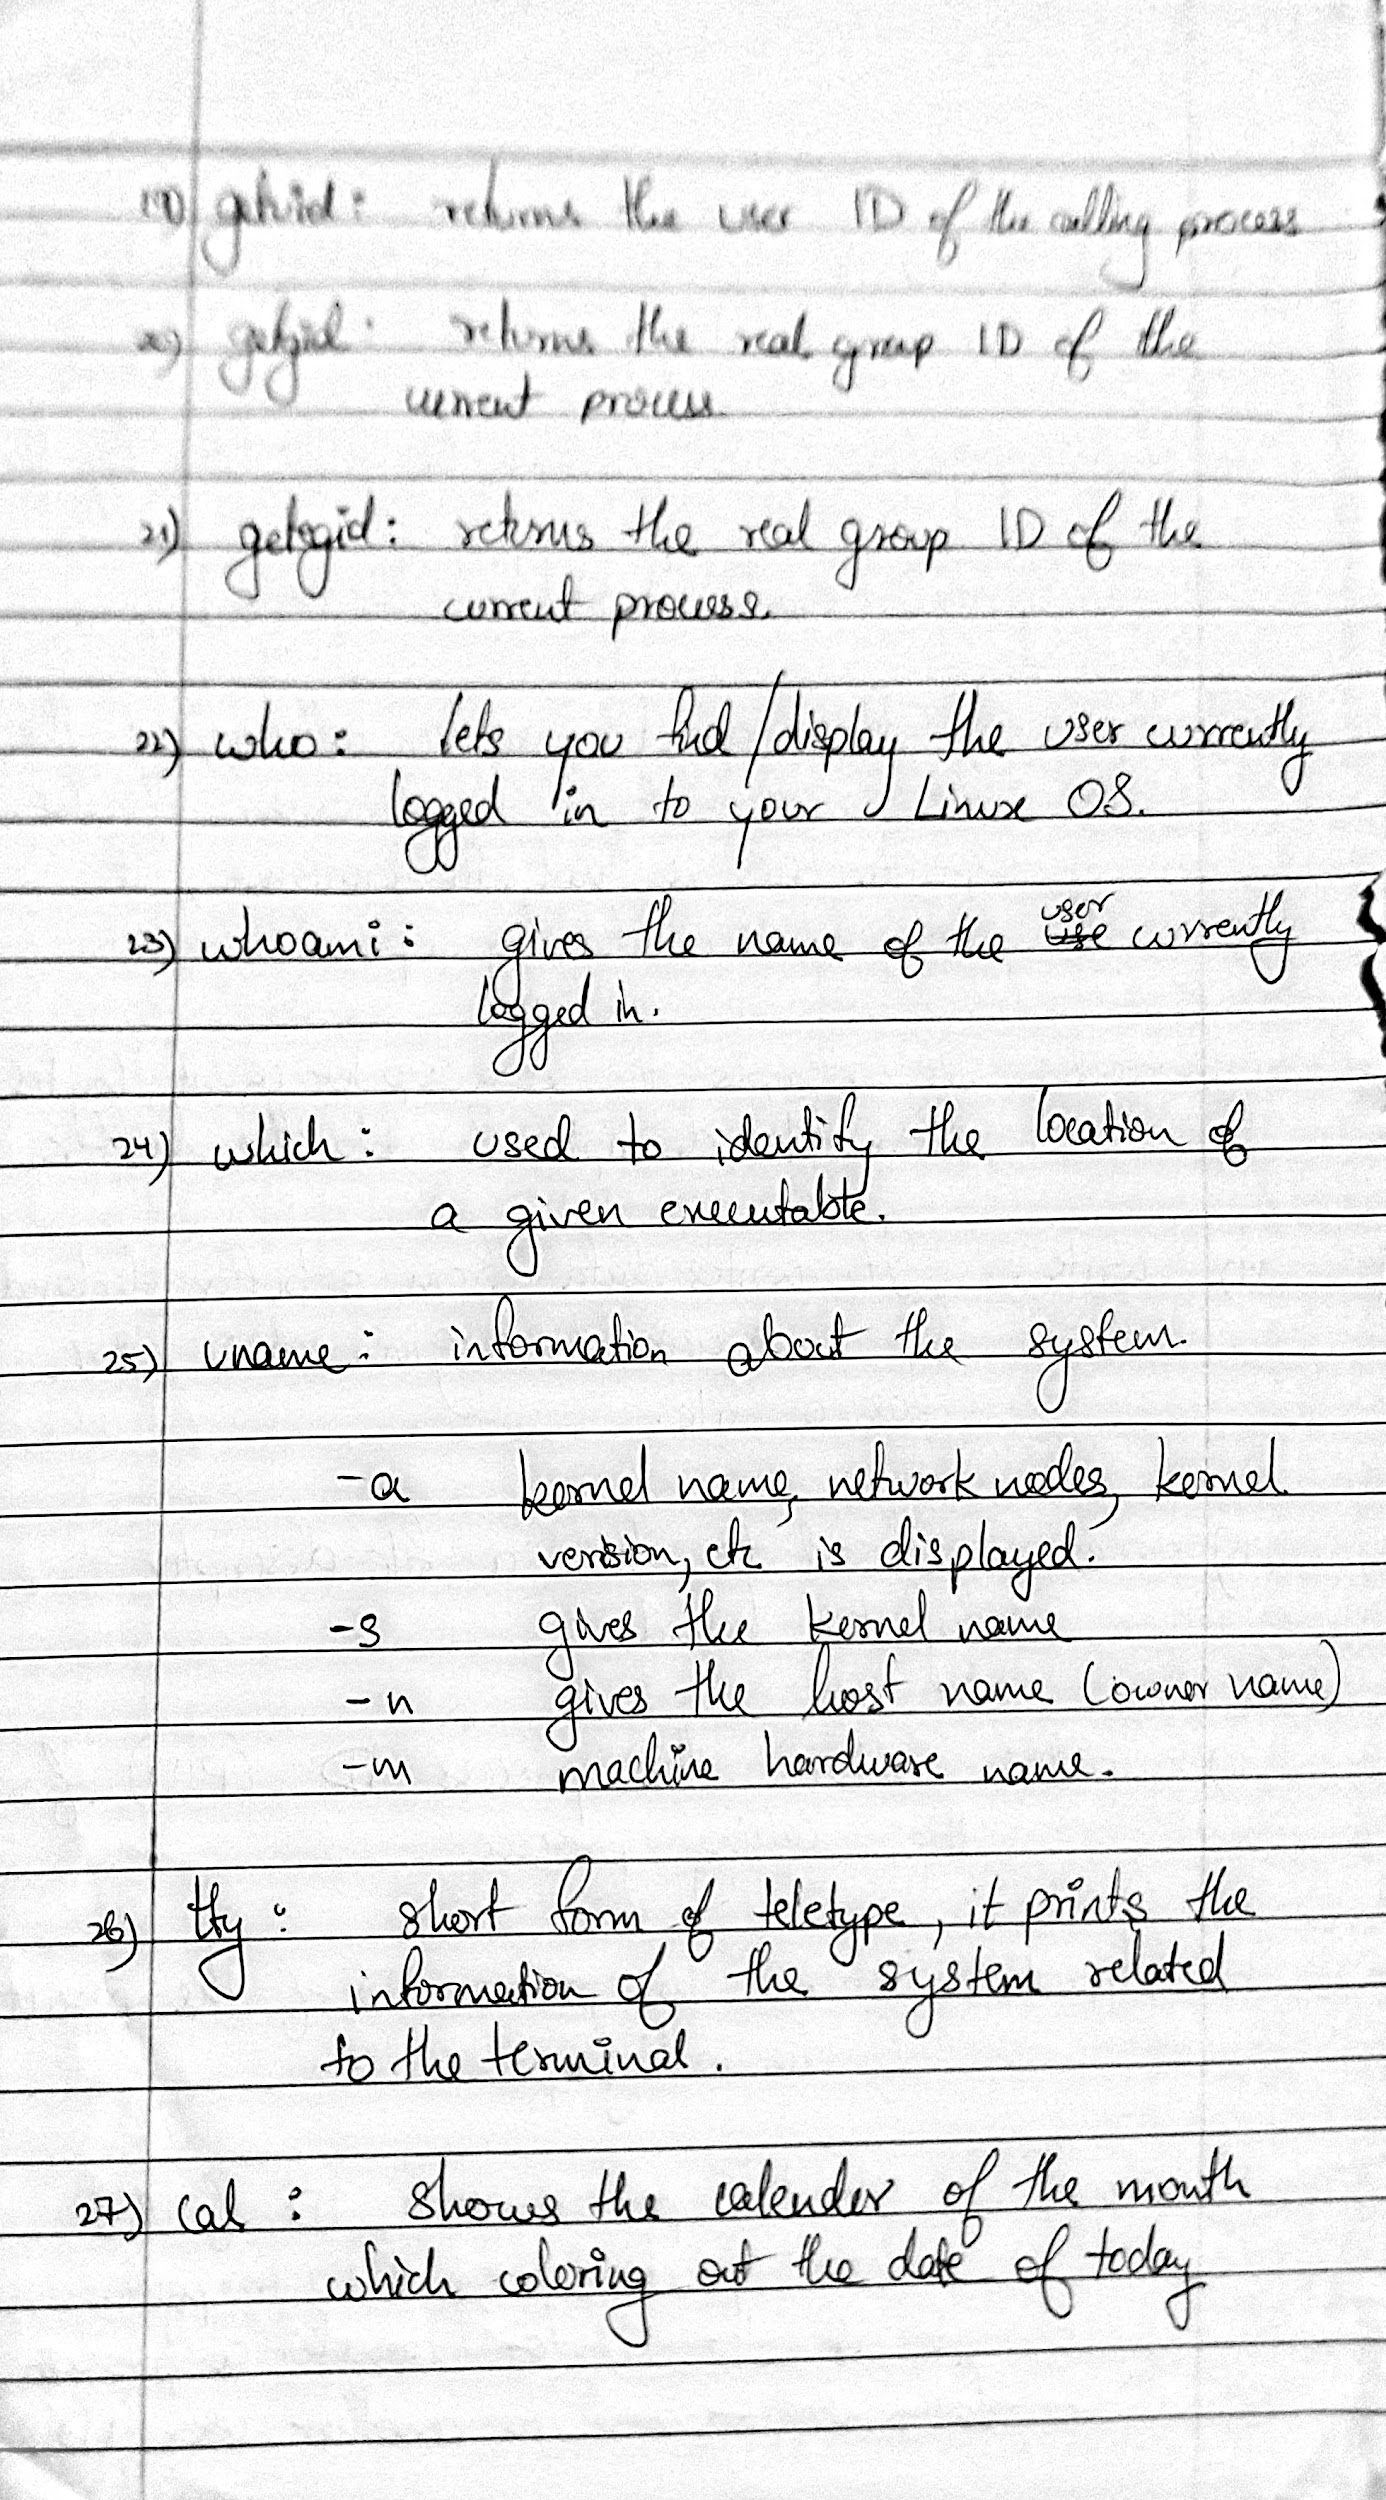 19) getuid: returns the user ID of the calling process
20) getgid: returns the real group ID of the
current process
21) getegid: returns the real group ID of the
current process.
22) who: lets you find/display the user currently
logged in to your Linux OS.
23) whoami: gives the name of the user currently
logged in.
24) which: used to identify the location of
a given executable.
25) uname: information about the system.
-a kernel name, network nodes, kernel
version, etc is displayed.
-s gives the kernel name
-n gives the host name (owner name)
-m machine hardware name.
26) tty: short form of teletype, it prints the
information of the system related
to the terminal.
27) cal: shows the calender of the month
which coloring out the date of today